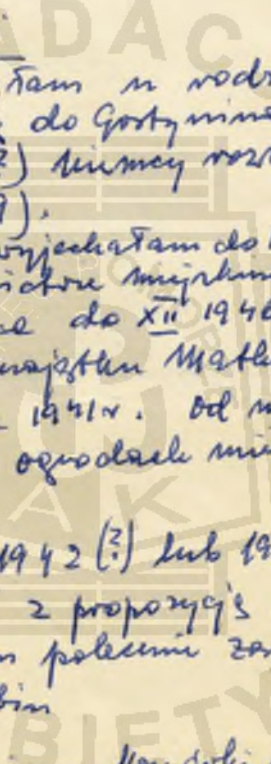 łam u rodz
do Gostynina
?) Niemcy roz
9).
wyjechałam do
miejskim
do XII 1940
majątku Matk
1941 r. Od m
ogrodach mie
1942 (?) lub 19
z propozycją
polecenie za